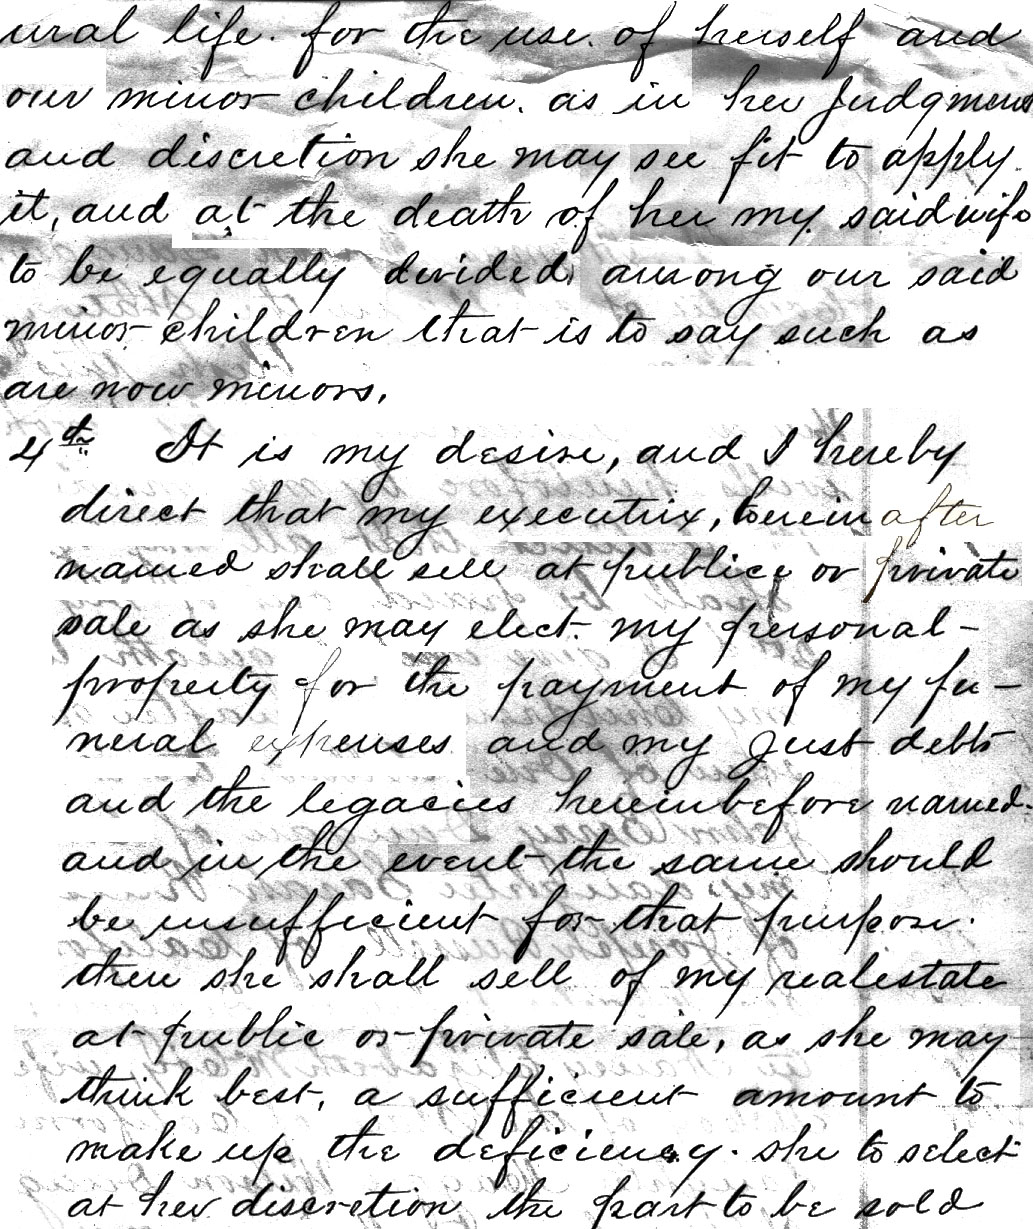 ural life. for the use. of herself and
our minor children. as in her Judgment
and discretion she may see fit to apply
it, and at the death of her my said wife
to be equally divided, among our said
minor children that is to say such as
are now minors.
4th It is my desire, and I hereby
direct that my executrix, herein after
named shall sell at publice or private
sale as she may elect. my personal-
property for the payment of my fu-
neral expenses and my Just debts
and the legacies hereinbefore named.
and in the event the same should
be insufficient for that purpose.
then she shall sell of my realestate
at public or private sale, as she may
think best, a sufficient amount to
make up the deficiency. she to select
at her discretion the part to be sold